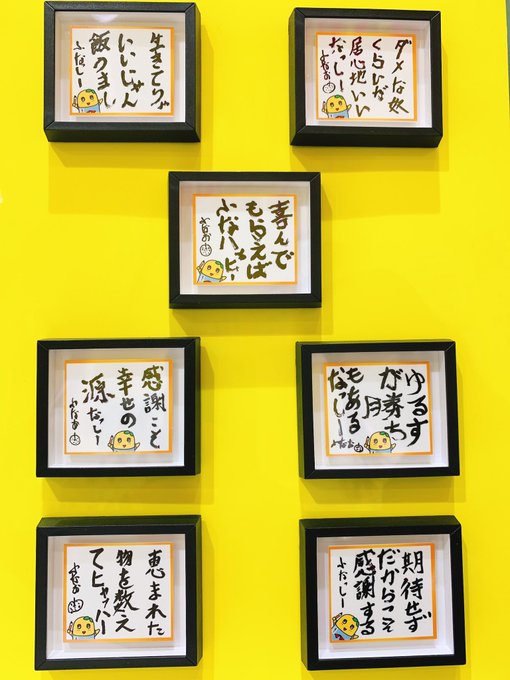 生きてりゃ
いいじゃん
飯うまし
ふなっしー
ダメな奴
くらいが
居心地いい
なっしー
ふなお
喜んで
もらえば
ふなお
感謝こそ
幸せの
源なっしー
ふなお
ゆるす
が勝ち
もある
なっしー
ふなお
恵まれた
物を数え
てヒャッハー
ふなお
期待せず
だからこそ
感謝する
ふなっしー